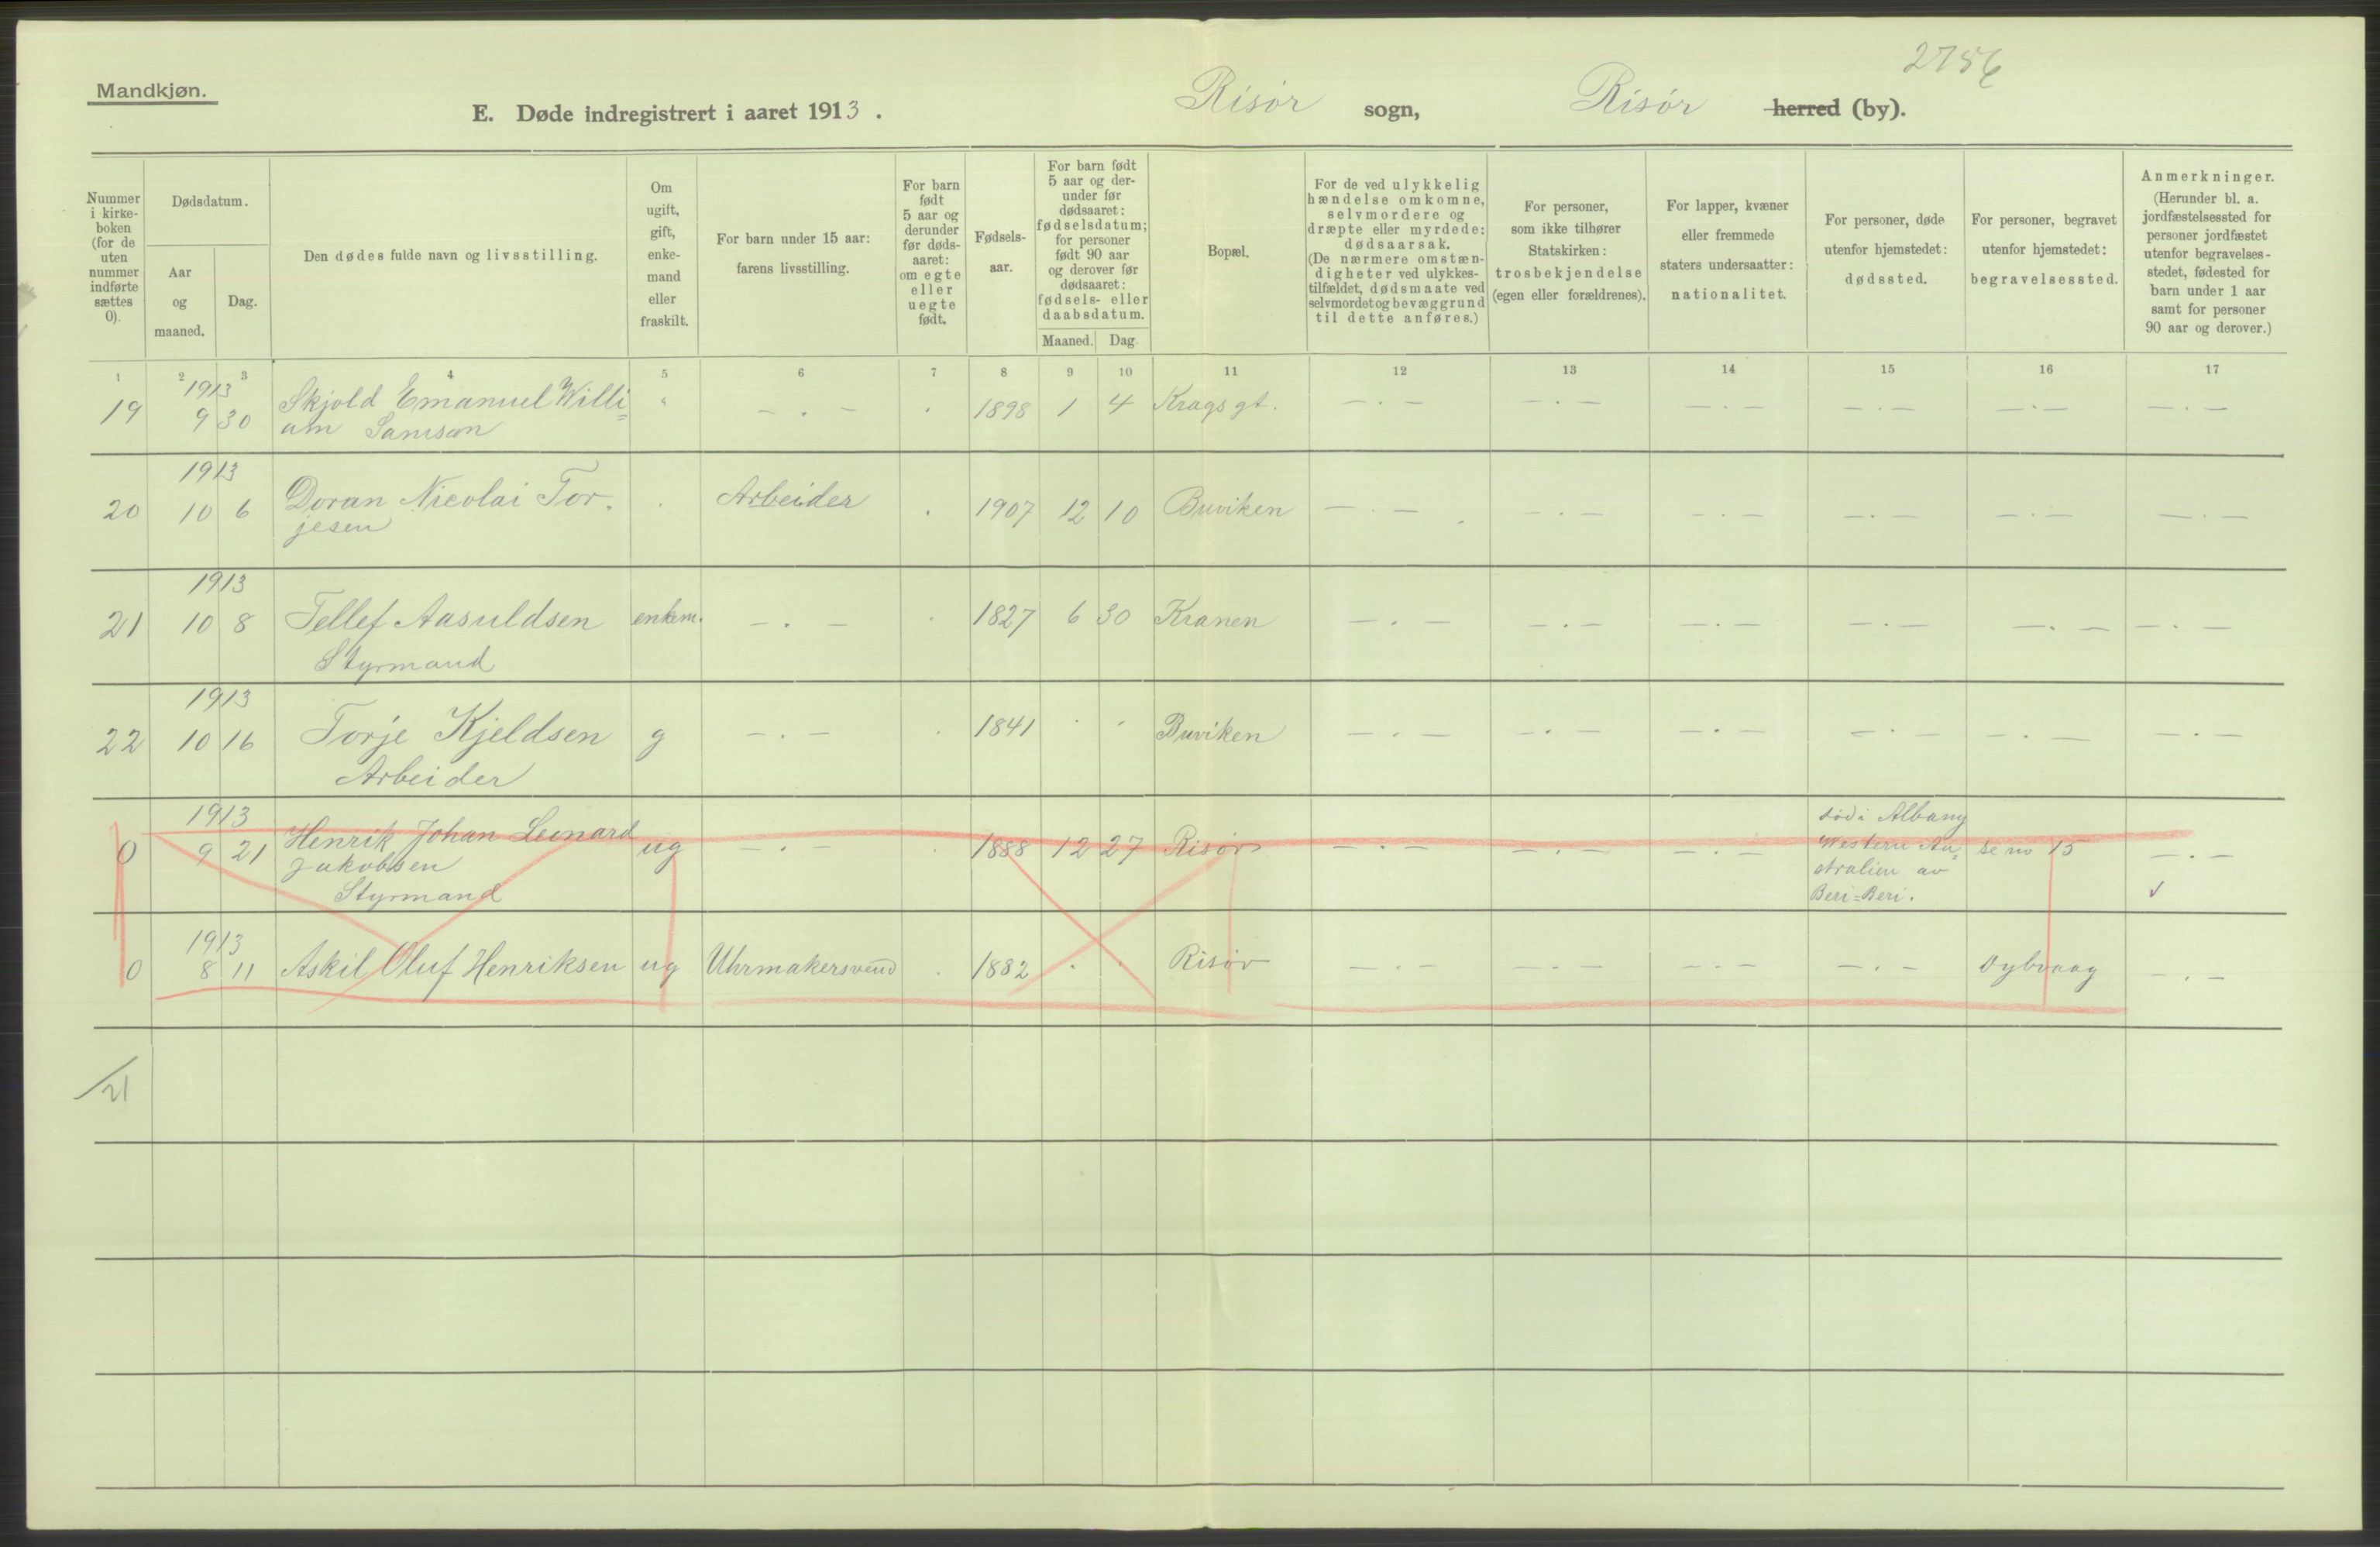 2756
Mandkjøn.
E. Døde indregistrert i aaret 1913. Risør sogn, Risør herred (by).
Nummer i kirke-boken (for de uten nummer indførte sættes 0).
Dødsdatum.
Aar og maaned.
Dag.
Den dødes fulde navn og livsstilling.
Om ugift, gift, enke-mand eller fraskilt.
For barn under 15 aar: farens livsstilling.
For barn født 5 aar og derunder før døds-aaret: om egte eller uegte født.
Fødsels-aar.
For barn født 5 aar og der-under før dødsaaret: fødselsdatum; for personer født 90 aar og derover før dødsaaret: fødsels- eller daabsdatum.
Maaned.
Dag
Bopæl.
For de ved ulykkelig hændelse omkomne, selvmordere og dræpte eller myrdede: dødsaarsak. (De nærmere omstæn-digheter ved ulykkes-tilfældet, dødsmaate ved selvmordet og bevæggrund til dette anføres.)
For personer, som ikke tilhører Statskirken: trosbekjendelse (egen eller forældrenes).
For lapper, kvæner eller fremmede staters undersaatter: nationalitet.
For personer, døde utenfor hjemstedet: dødssted.
For personer, begravet utenfor hjemstedet: begravelsessted.
Anmerkninger. (Herunder bl. a. jordfæstelsessted for personer jordfæstet utenfor begravelses-stedet, fødested for barn under 1 aar samt for personer 90 aar og derover.)
1 2 3 4 5 6 7 8 9 10 11 12 13 14 15 16 17
1913
19 9 30 Skjold Emanuel Willi= " — . — . 1898 1 4 Kragsgt. — . — — . — — . — — . — — . — — . —
am Samson
1913
20 10 6 Doran Nicolai Tor- . Arbeider . 1907 12 10 Buviken — . — — . — — . — — . — — . — — . —
jesen
1913
21 10 8 Tellef Aasuldsen enkem. — . — . 1827 6 30 Kranen — . — — . — — . — — . — — . — — . —
Styrmand
1913
22 10 16 Torje Kjeldsen g — . — . 1841 . . Buviken — . — — . — — . — — . — — . — — . —
Arbeider
1913
0 9 21 Henrik Johan Leonard ug — . — . 1888 12 27 Risør — . — — . — — . — død i Albany se no 15 — . —
Jakobsen Western Au=
Styrmand stralien av
Beri-Beri. ✓
1913
0 8 11 Askil Oluf Henriksen ug Uhrmakersvend . 1882 . . Risør — . — — . — — . — — . — Dybvaag — . —
/21